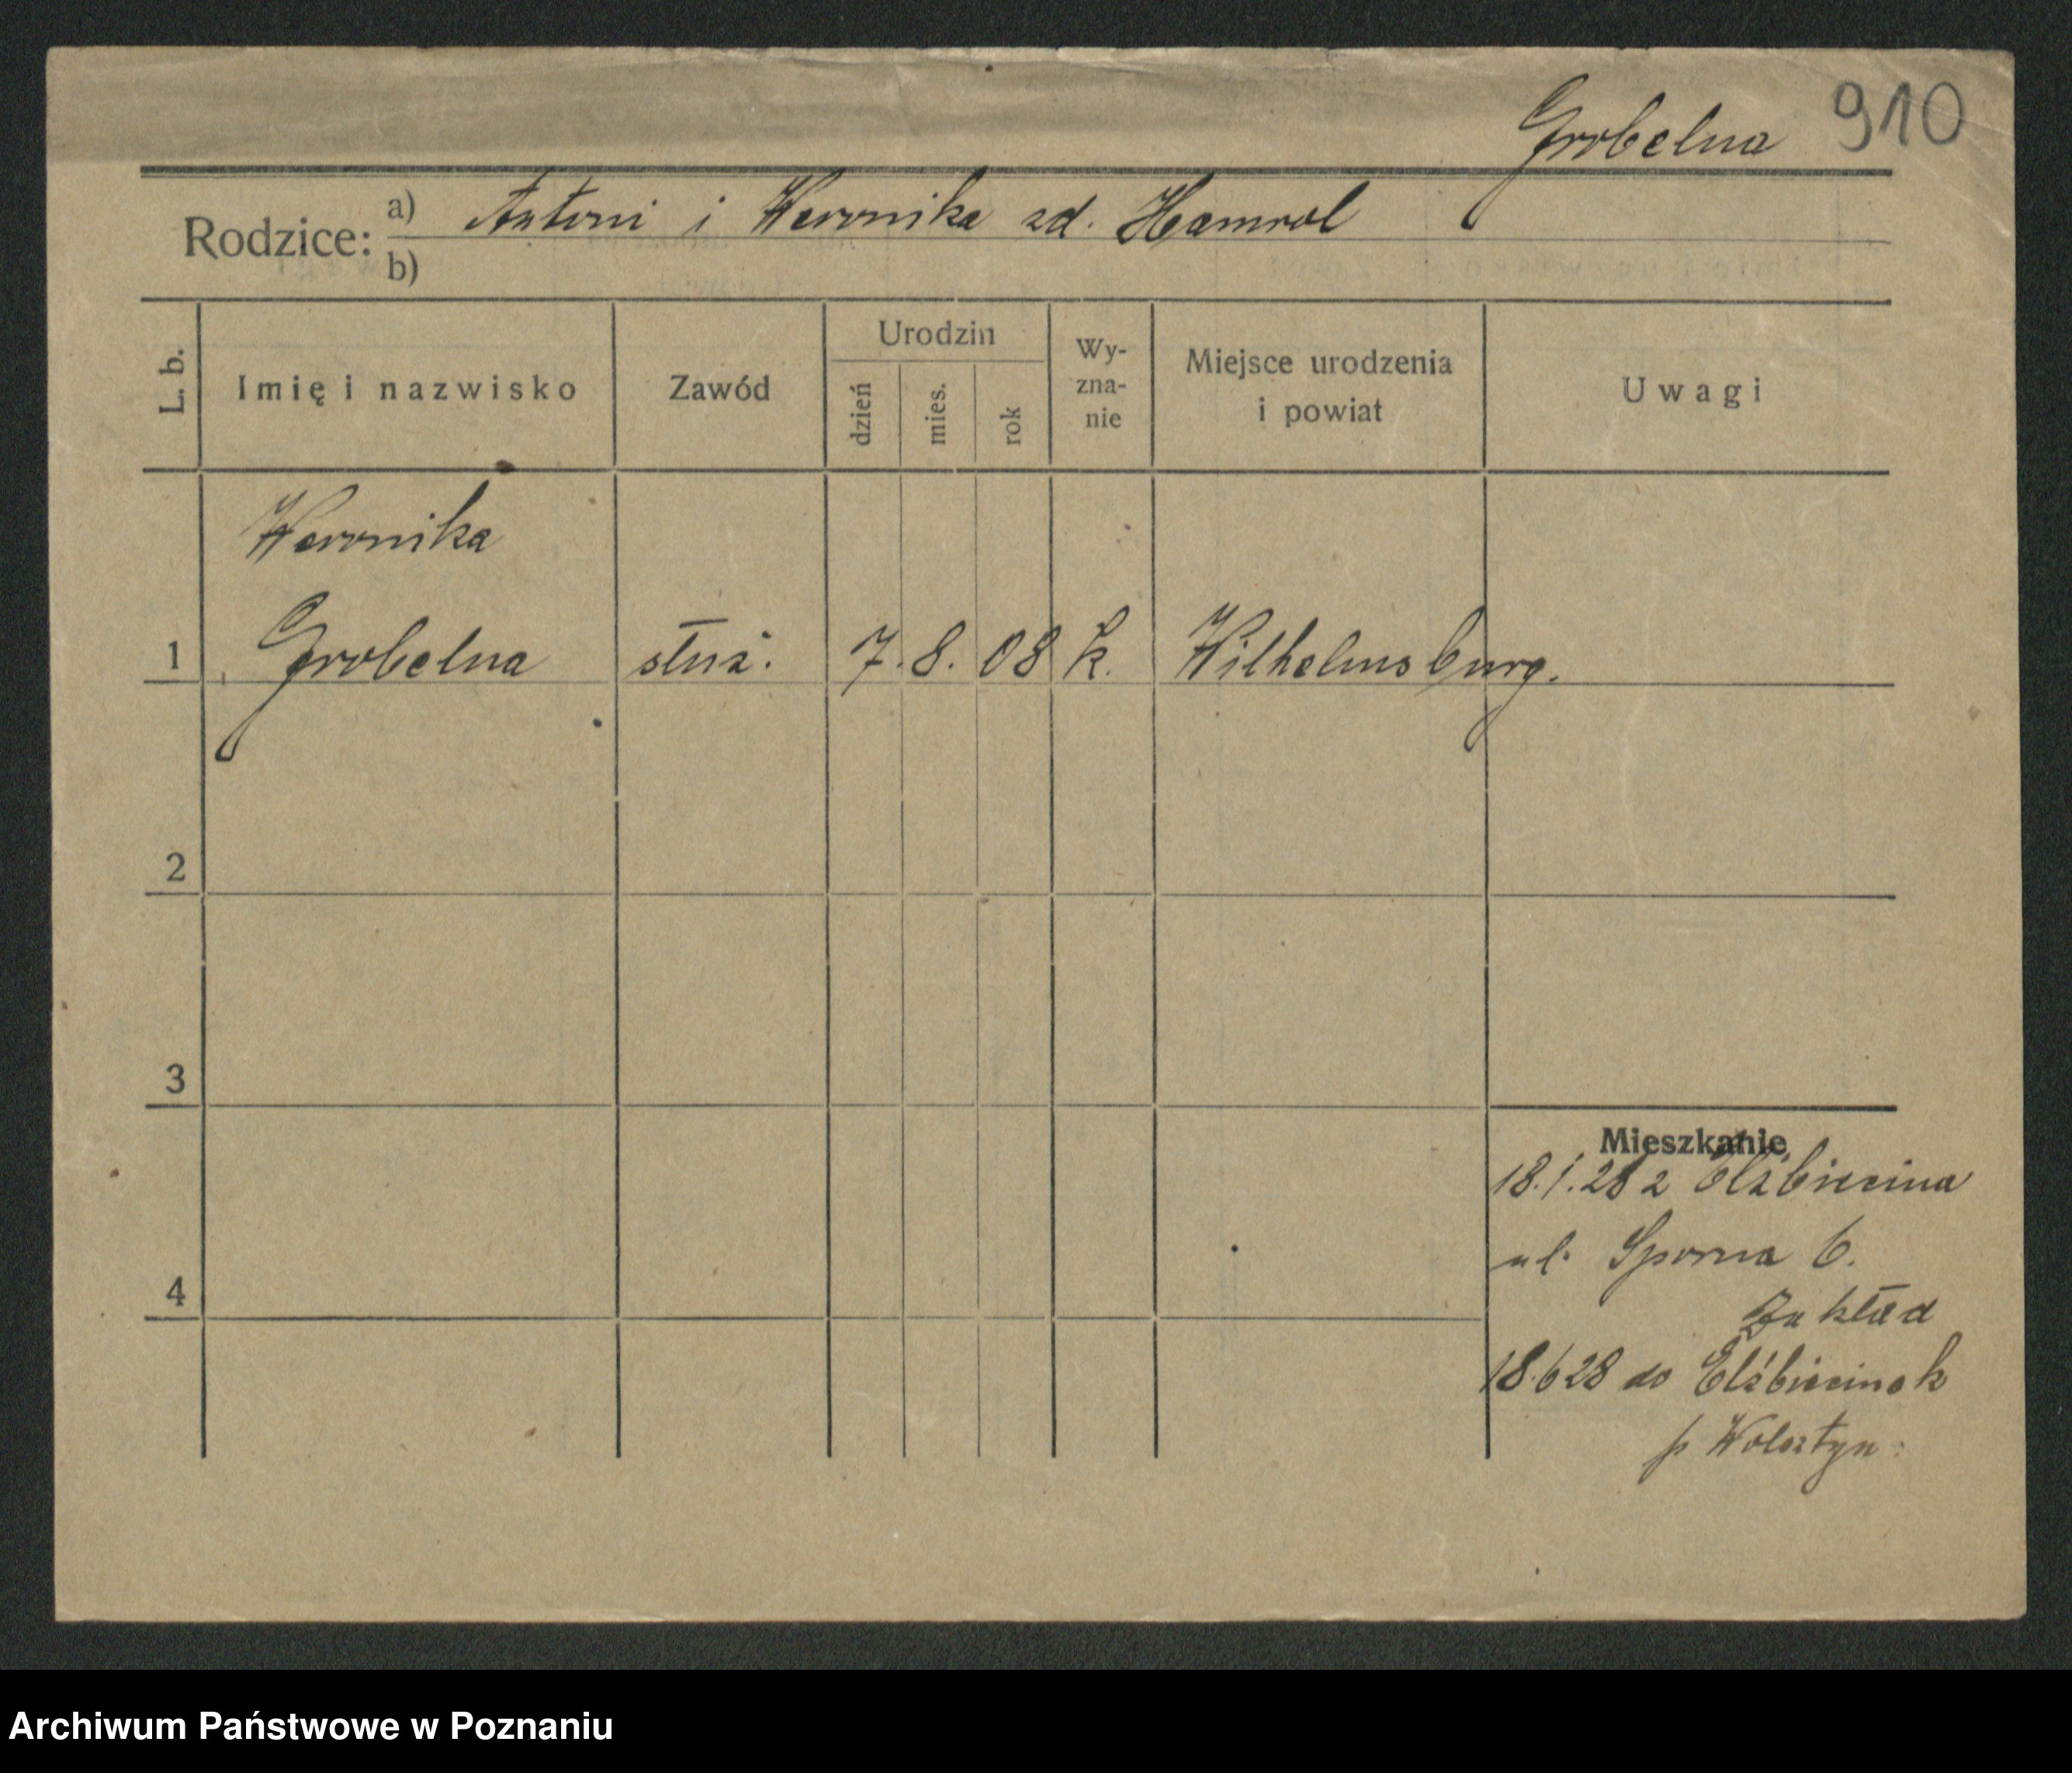 Grobelna 910
Rodzice: a) Antoni i Weronika zd. Hamrol
b)
L. b. Imię i nazwisko Zawód Urodzin dzień mies. rok Wy-zna-nie Miejsce urodzenia i powiat Uwagi
Weronika
1 Grobelna służ. 7. 8. 08 k. Wilhelmsburg.
2
3
Mieszkanie
18.1.28 z Elżbiecina
ul. Sporna 6.
4
Zakład
18.6 28 do Elżbiecinek
p Wolsztyn
Archiwum Państwowe w Poznaniu